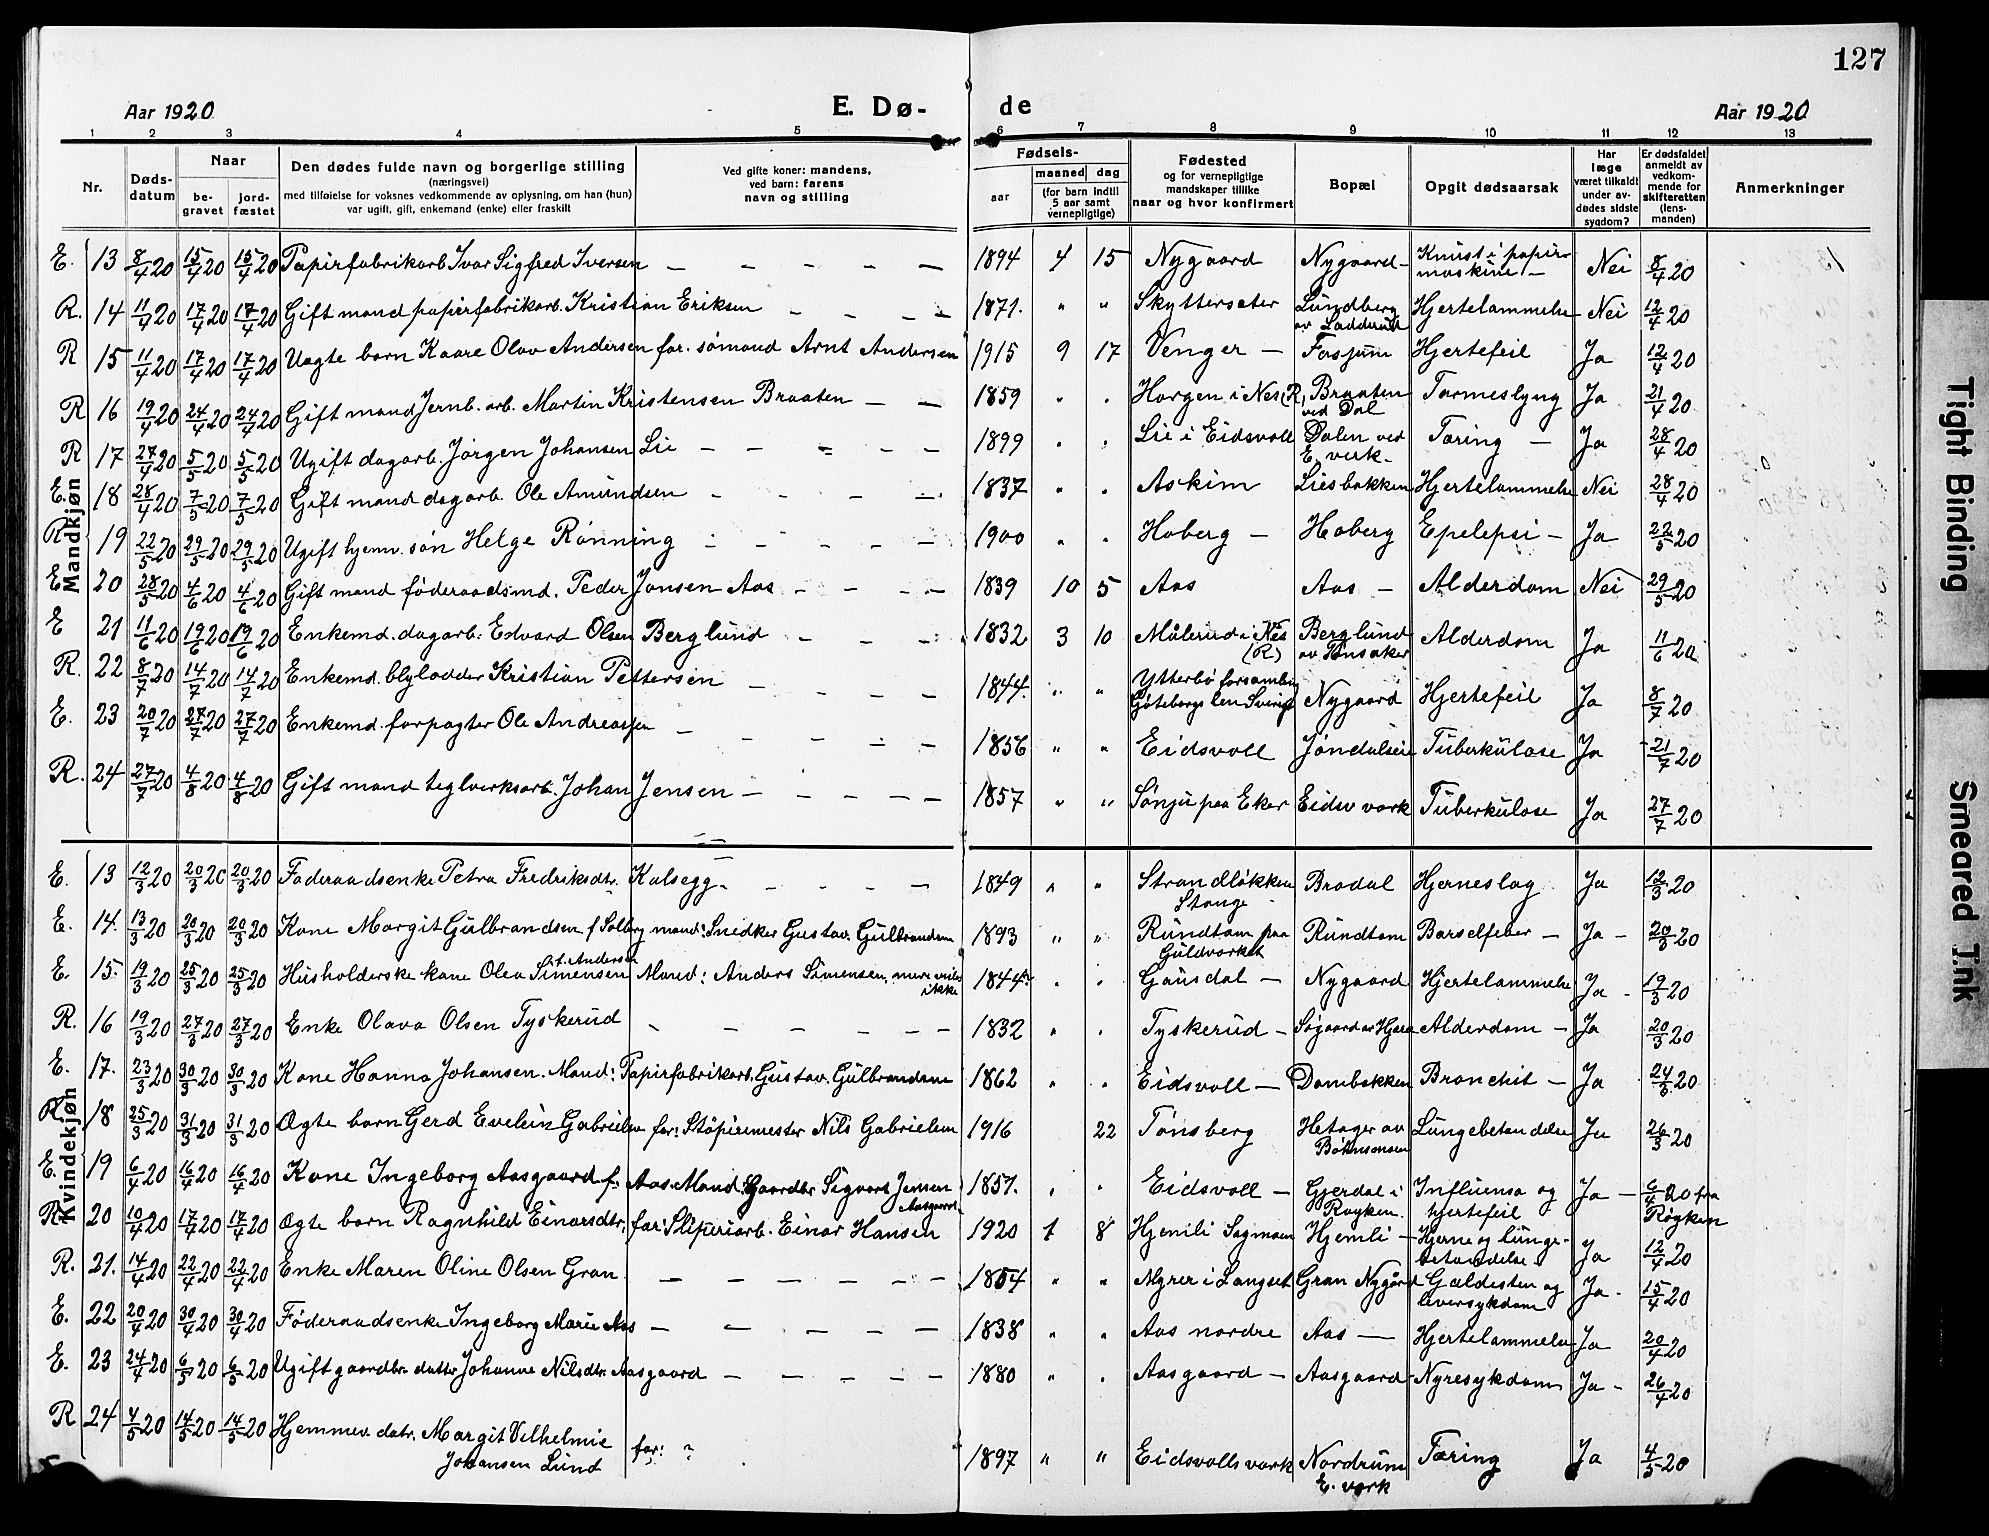 127
Aar 1920 E. Dø- de Aar 1920
1 2 3 4 5 6 7 8 9 10 11 12 13
Nr. Døds-datum Naar be-gravet jord-fæstet Den dødes fulde navn og borgerlige stilling (næringsvei) med tilføielse for voksnes vedkommende av oplysning, om han (hun) var ugift, gift, enkemand (enke) eller fraskilt Ved gifte koner: mandens, ved barn: farens navn og stilling Fødsels- aar maaned dag (for barn indtil 5 aar samt vernepligtige) Fødested og for vernepligtige mandskaper tillike naar og hvor konfirmert Bopæl Opgit dødsaarsak Har læge været tilkaldt under av-dødes sidste sygdom? Er dødsfaldet anmeldt av vedkom-mende for skifteretten (lens-manden) Anmerkninger
Mandkjøn
E. 13 8/4 20 15/4 20 15/4 20 Papirfabrikarb Ivar Sigfred Iversen – – – – 1894 4 15 Nygaard Nygaard – Knust i papir-maskine – Nei 8/4 20
R. 14 11/4 20 17/4 20 17/4 20 Gift mand papirfabrikarb. Kristian Eriksen – – – 1871. " " Skyttersæter Lundberg av Ladderud Hjertelammelse Nei 12/4 20
R 15 11/4 20 17/4 20 17/4 20 Uægte barn Kaare Olav Andersen far. sømand Arnt Andersen 1915 9 17 Venger – Fosjum Hjertefeil Ja 12/4 20
R 16 19/4 20 24/4 20 24/4 20 Gift mand Jernb. arb. Martin Kristensen Braaten – – 1859 " " Horgen i Nes (R) Braaten ved Dal Tarmeslyng Ja 21/4 20
R 17 27/4 20 5/5 20 5/5 20 Ugift dagarb. Jørgen Johansen Lie – – – – – 1899 " " Lie i Eidsvoll Dalen ved E. verk – Tæring – Ja 28/4 20
E. 18 28/4 20 7/5 20 7/5 20 Gift mand dagarb. Ole Amundsen – – – – 1837 " " Askim Liesbakken Hjertelammelse Nei 28/4 20
R 19 22/5 20 29/5 20 29/5 20 Ugift hjemv. søn Helge Rønning – – – – 1900 " " Hoberg – Hoberg Epelepsi – Ja 22/5 20
E 20 28/5 20 4/6 20 4/6 20 Gift mand føderaadsmd. Peder Jonsen Aas – – – 1839 10 5 Aas Aas – Alderdom Nei 29/5 20
E 21 11/6 20 19/6 20 19/6 20 Enkemd. dagarb. Edvard Olsen Berglund – – – 1832 3 10 Målerud i Nes (R) Berglund av Hønsaker Alderdom Ja 11/6 20
R. 22 8/7 20 14/7 20 14/7 20 Enkemd. blylodder Kristian Pettersen – – – – 1844. " " Ytterbö forsamling Göteborgs len Sverige Nygaard Hjertefeil Ja 8/7 20
E. 23 20/7 20 27/7 20 27/7 20 Enkemd. forpagter Ole Andreassen – – – – 1856 " " Eidsvoll Jøndalseie Tuberkulose Ja 21/7 20
R. 24 27/7 20 4/8 20 4/8 20 Gift mand teglverksarb. Johan Jensen – – – – 1857 " " Sønju paa Eker Eidsv verk Tuberkulose Ja 27/7 20
Kvindekjøn
E. 13 12/3 20 20/3 20 20/3 20 Føderaadsenke Petra Fredriksdtr. Kalsegg – – – – 1849 " " Strandløkken Stange Brodal Hjerneslag Ja 12/3 20
E. 14. 13/3 20 20/3 20 20/3 20 Kone Margit Gulbrandsen f Solberg mand: Snedker Gustav Gulbrandsen 1893 " " Rundtom paa Guldverket Rundtom Barselfeber – Ja – 20/3 20
E. 15. 19/3 20 25/3 20 25/3 20 Husholderske kone Olea Simensen f. Andersen Mand: Anders Simensen, mere vides ikke 1844. " " Gausdal – Nygaard Hjertelammelse Ja – 19/3 20
R. 16 19/3 20 27/3 20 27/3 20 Enke Olava Olsen Tyskerud – – – – – 1832 " " Tyskerud – Søgaard av Hjera Alderdom – Ja 20/3 20
E. 17. 23/3 20 30/3 20 30/3 20 Kone Hanna Johansen. Mand: Papirfabrikarb. Gustav Gulbrandsen 1862 " " Eidsvoll – Dambakken Bronchit – Ja 24/3 20
R. 18 25/3 20 31/3 20 31/3 20 Ægte barn Gerd Evelein Gabrielsen far: Støperimester Nils Gabrielsen 1916 22 Tønsberg Hetager av Lungebetændelse Ja 26/3 20
E. 19 6/4 20 16/4 20 16/4 20 Kone Ingeborg Aasgaard f. Aas. Mand: Gaardbr Sigvart Jensen Aasgaard 1857. " " Eidsvoll – Gjerdal i Røyken. Influensa og hjertefeil Ja – 6/4 20 fra Røyken
R. 20 10/4 20 17/4 20 17/4 20 Ægte barn Ragnhild Einarsdtr, far: Sliperiarb. Einar Hansen 1920 1 8 Hjemli Sagmoen Hjemli – Hjerne og lunge-betændelse Ja 12/4 20
R. 21. 14/4 20 22/4 20 22/4 20 Enke Maren Oline Olsen Gran – – – – – 1854 " " Myrer i Langset Gran Nygård Galdesten og leversykdom Ja – 15/4 20
E. 22 20/4 20 30/4 20 30/4 20 Føderaadsenke Ingeborg Marie Aas – – – – – 1838 " " Aas nordre Aas – Hjertelammelse Ja 20/4 20
E. 23 24/4 20 6/5 20 6/5 20 Ugift gaardbr. datter Johanne Nilsdtr. Aasgaard – – – – 1880 " " Aasgaard – Aasgaard Nyresykdom Ja – 26/4 20
R 24 4/5 20 14/5 20 14/5 20 Hjemmev. datr. Margit Vilhelmie Johansen Lund far: ? 1897 " " Eidsvolls verk Nordrum E. verk Tæring Ja 4/5 20
Tight Binding
Smeared Ink